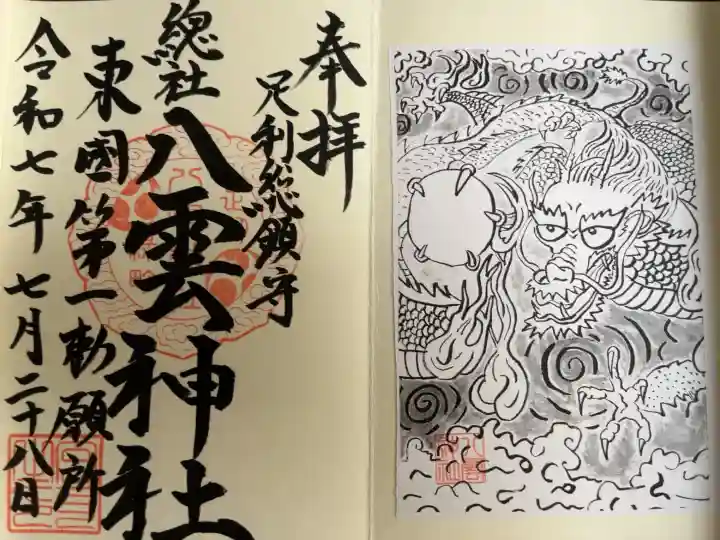 奉拝
足利総鎮守
總社
八雲神社
東國第一勅願所
令和七年七月二十八日